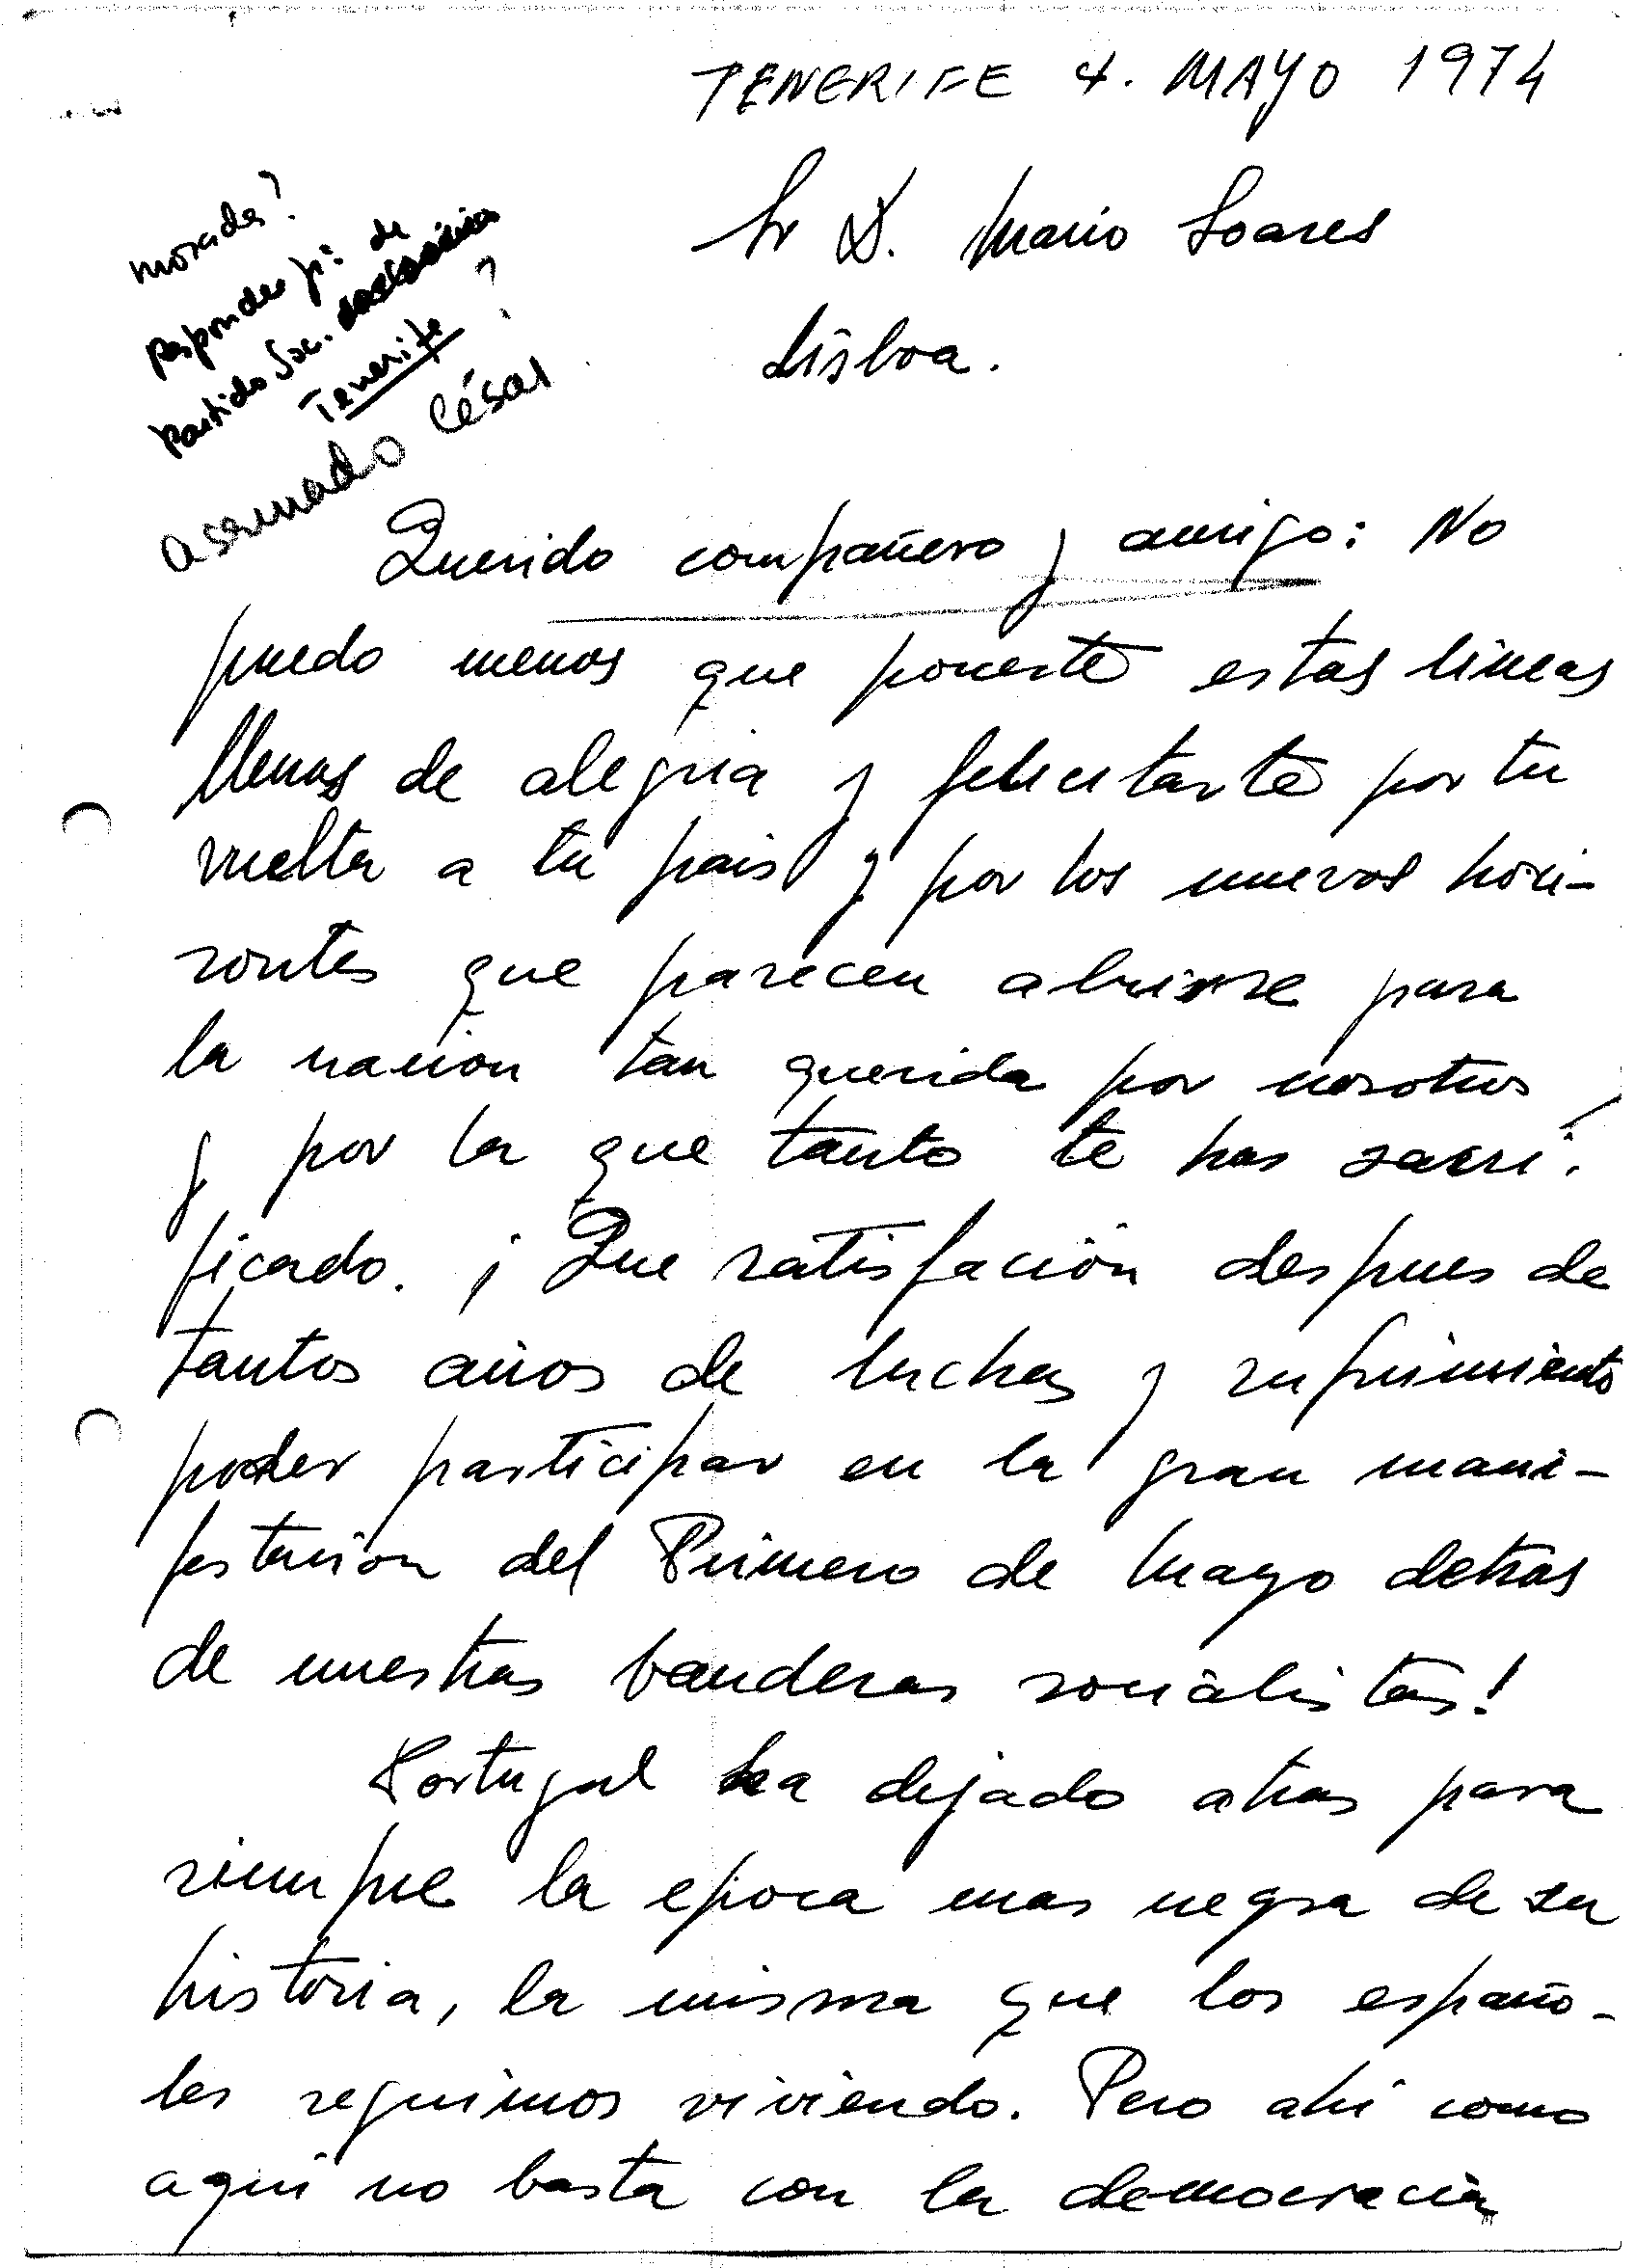 TENERIFE 4. MAYO 1974
Sr D. Mario Soares
Lisboa.
morada?
Responder p.ª de
Partido Soc.
Tenerife?
assinado César
Querido compañero y amigo: No
puedo menos que ponerte estas lineas
llenas de alegria y felicitarte por tu
vuelta a tu pais y por los nuevos hori-
zontes que parecen abrirse para
la nacion tan querida por nosotros
y por la que tanto te has sacri-
ficado. ¡Que satisfación despues de
tantos años de luchas y sufrimiento
poder participar en la gran mani-
festacion del Primero de Mayo detras
de nuestras banderas socialistas!
Portugal ha dejado atras para
siempre la epoca mas negra de su
historia, la misma que los españo-
les seguimos viviendo. Pero ahi como
aqui no basta con la democracia